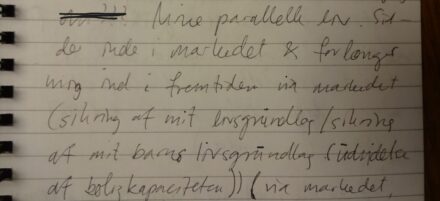 !!! Mine parallelle liv. Sid-
der inde i markedet & forlænger
mig ind i fremtiden via markedet
(sikring af mit livsgrundlag/sikring
af mit barns livsgrundlag (udvidelse
af boligkapaciteten)) (via markedet,